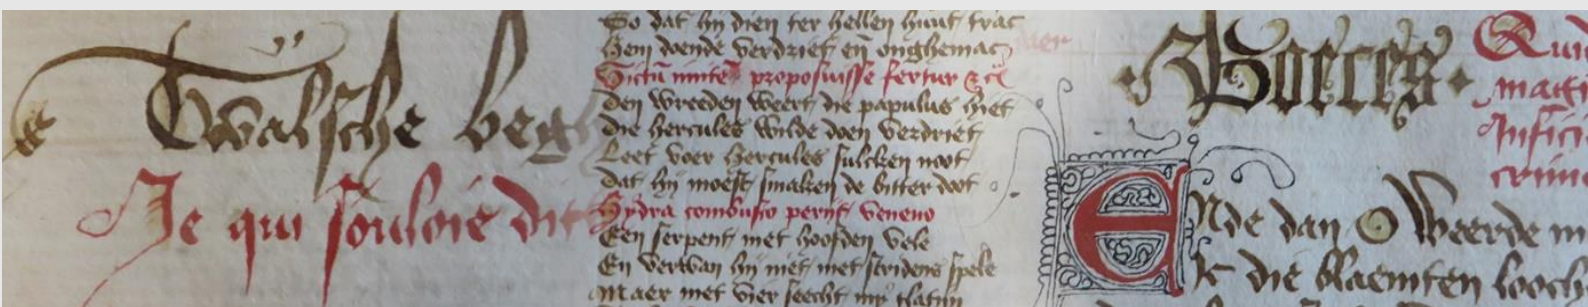 Twalsche beg
Je qui souloie dit
So dat hij dien ter hellen huut trac
Hem doende verdriet en onghemac
Victu inmite proposuisse fertur
den wreeden weert die papulus hiet
die hercules wilde doen verdriet
Leet voer hercules sulcken noot
dat hij moest smaken de bitter doot
Hydra combusto periit veneno
Een serpent met hoofden vele
En verwan hij niet met stridens spele
Maer met vier seecht mijn tlatijn
.Boeces.
Ende dan O weerde m
Ic die blaemten looch
Quid
mag
Infici
crime